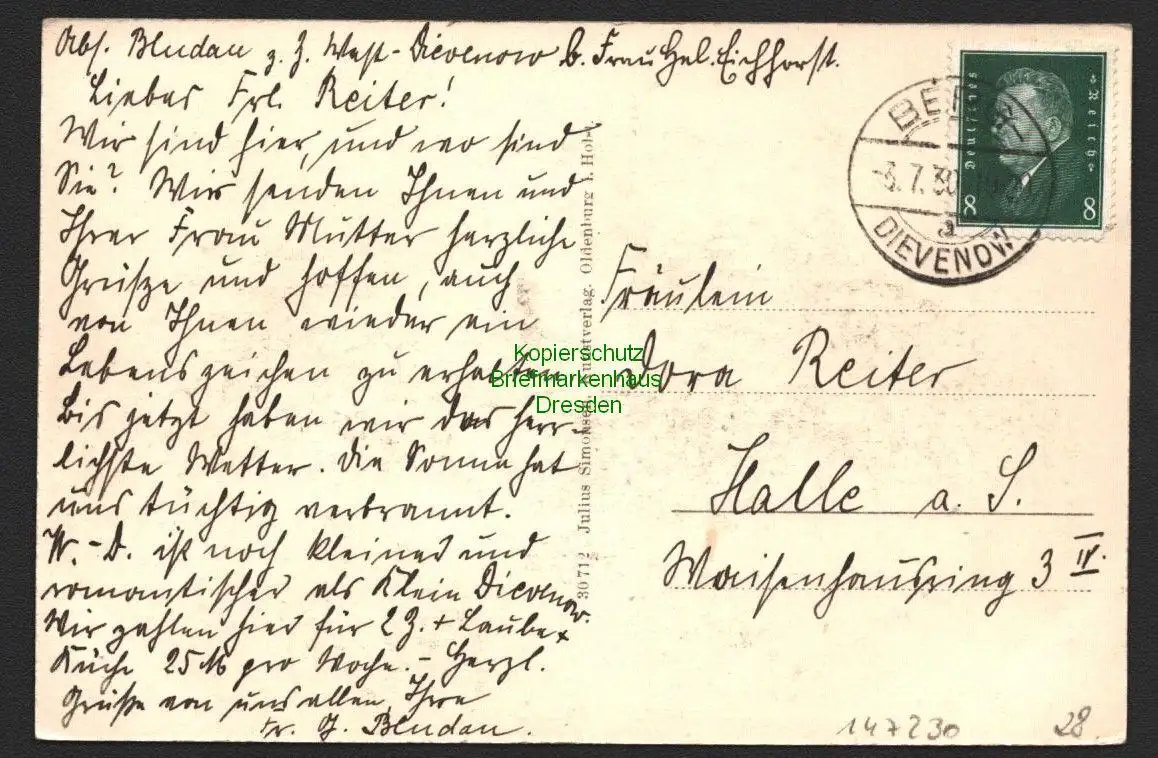 Abs. Bludau z. Z. West-Dievenow b. Frau Hel. Eichhorst.
Liebes Frl. Reiter!
Wir sind hier, und wo sind
Sie? Wir senden Ihnen und
Ihrer Frau Mutter herzliche
Grüsze und hoffen, auch
von Ihnen wieder ein
Lebenszeichen zu erhalten
Bis jetzt haben wir das herr-
lichste Wetter. Die Sonne hat
uns tüchtig verbrannt.
W.-D. ist noch kleiner und
romantischer als Klein Dievenow.
Wir zahlen hier für 2 Z. + Laube +
Küche 25 M pro Woche. - Herzl.
Grüße von uns allen, Ihre
Fr. J. Bludau.
30712 Julius Simonsen, Kunstverlag, Oldenburg i. Holst.
Deutsches Reich
8 8
BERG-
-3.7.30
a
DIEVENOW
Fräulein
Dora Reiter
Halle a. S.
Waisenhausring 3 IV.
Kopierschutz
Briefmarkenhaus
Dresden
147230
28